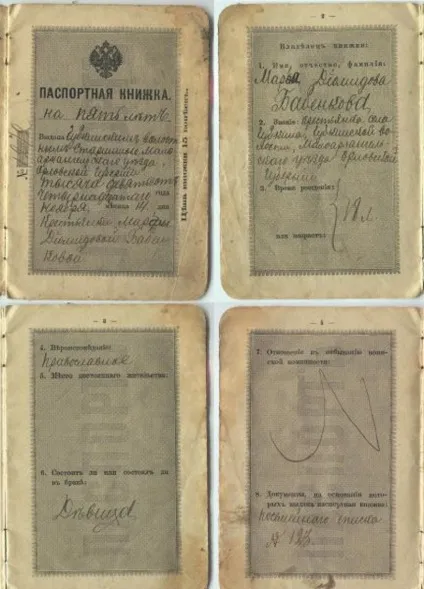 ПАСПОРТНАЯ КНИЖКА.
на пять лѣтъ
Выдана Губкинскимъ волост
нымъ Старшиною Мало
архангельскаго уѣзда
Орловской губерніи
тысяча девятьсотъ
четырнадцатаго года
ноября мѣсяца дня
Крестьянкѣ Марѳѣ
Діомидовой Бабен
ковой
Цѣна книжки 15 копѣекъ.
— 2 —
Владѣлецъ книжки:
1. Имя, отчество, фамилія:
Діомидова
Бабенкова
2. Званіе: крестьянка села
Губкина, Губкинской во
лости, Малоархангель
скаго уѣзда Орловской
губерніи
3. Время рожденія:
19 л.
или возрастъ:
— 3 —
4. Вѣроисповѣданіе:
Православное
5. Мѣсто постояннаго жительства:
6. Состоитъ ли или состоялъ ли
въ бракѣ:
Дѣвица
— 4 —
7. Отношеніе къ отбыванію воин-
ской повинности:
8. Документы, на основаніи кото-
рыхъ выдана паспортная книжка:
посемейнаго списка
№ 123